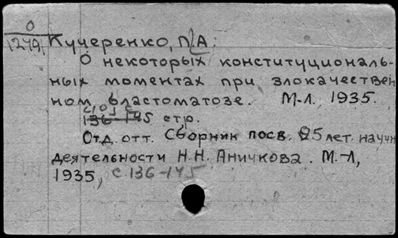 О
1279
Кучеренко, П.А.
О некоторых конституциональ-
ных моментах при злокачествен
ном бластоматозе. М-Л., 1935.
136-145 стр.
Отд. отт. Сборник посв. 25 лет. научн
деятельности Н.Н. Аничкова. М-Л,
1935, с 136-145